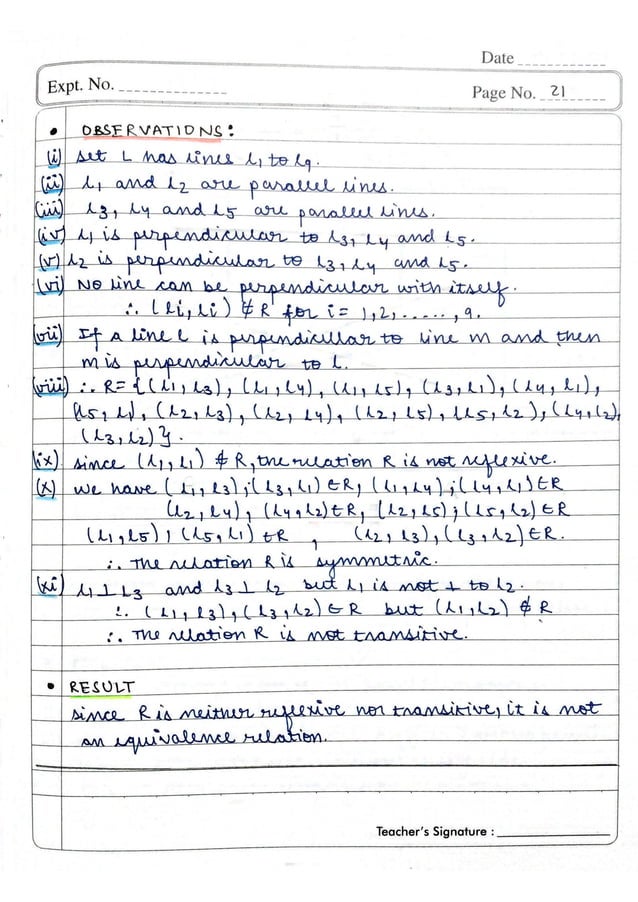 Date
Expt. No.
Page No. 21
• OBSERVATIONS:
(i) Set L has lines l1 to l9.
(ii) l1 and l2 are parallel lines.
(iii) l3, l4 and l5 are parallel lines.
(iv) l1 is perpendicular to l3, l4 and l5.
(v) l2 is perpendicular to l3, l4 and l5.
(vi) No line can be perpendicular with itself.
∴ (li, li) ∉ R for i = 1,2,....., 9.
(vii) If a line l is perpendicular to line m and then
m is perpendicular to l.
(viii) ∴ R= {(l1, l3), (l1, l4), (l1, l5), (l3, l1), (l4, l1),
(l5, l1), (l2, l3), (l2, l4), (l2, l5), (l5, l2), (l4, l2),
(l3, l2)}.
(ix) since (l1, l1) ∉ R, the relation R is not reflexive.
(x) We have (l1, l3); (l3, l1) ∈ R, (l1, l4); (l4, l1) ∈ R
(l2, l4), (l4, l2) ∈ R, (l2, l5); (l5, l2) ∈ R
(l1, l5); (l5, l1) ∈ R , (l2, l3), (l3, l2) ∈ R.
∴ The relation R is symmetric.
(xi) l1 ⊥ l3 and l3 ⊥ l2 but l1 is not ⊥ to l2.
∴ (l1, l3), (l3, l2) ∈ R but (l1, l2) ∉ R
∴ The relation R is not transitive.
• RESULT
Since R is neither reflexive nor transitive, it is not
an equivalence relation.
Teacher's Signature :